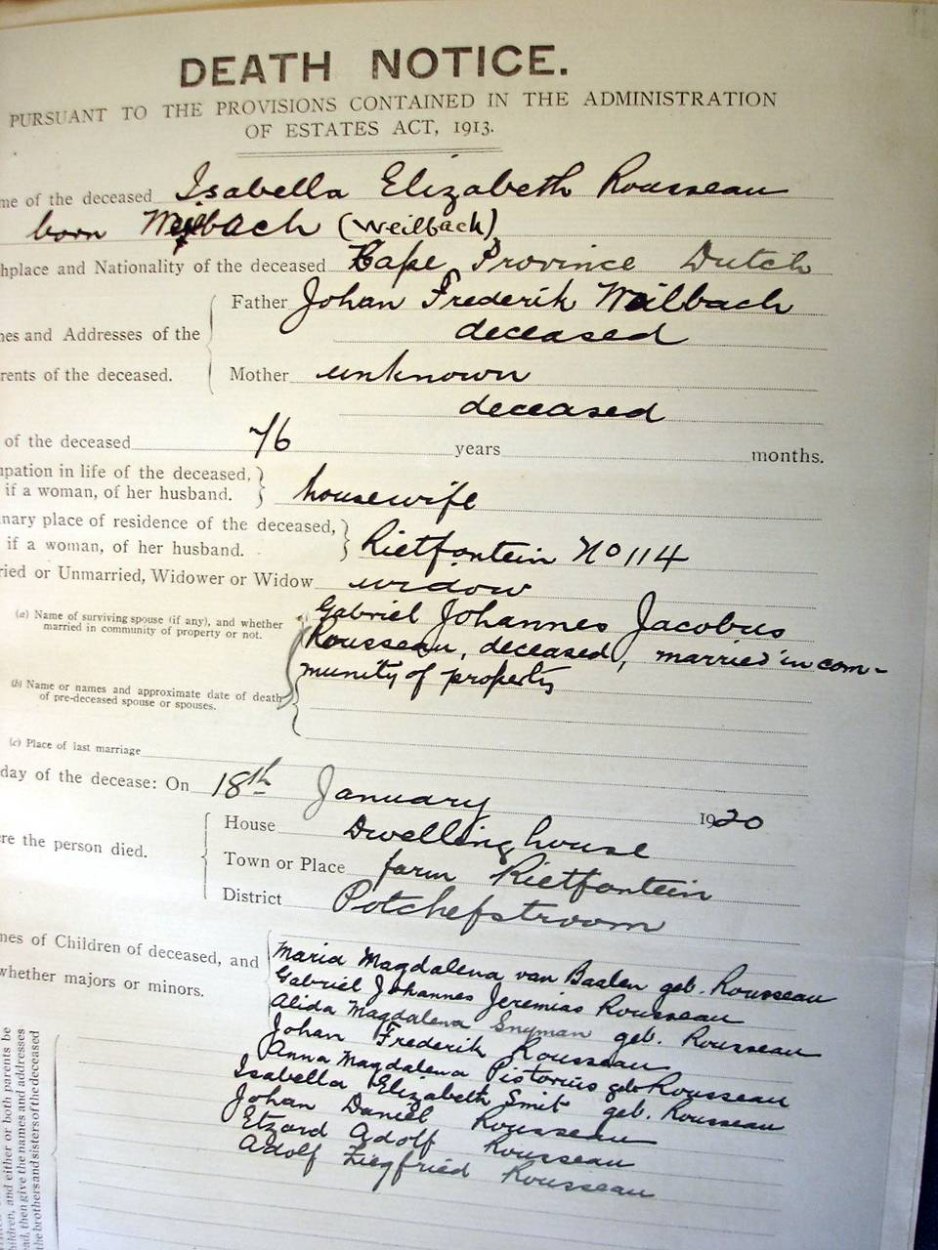 DEATH NOTICE.
PURSUANT TO THE PROVISIONS CONTAINED IN THE ADMINISTRATION
OF ESTATES ACT, 1913.
me of the deceased Isabella Elizabeth Rousseau
born Weilbach (Weilbach)
hplace and Nationality of the deceased Cape Province Dutch
Father Johan Frederik Weilbach
deceased
nes and Addresses of the
rents of the deceased.
Mother unknown
deceased
of the deceased 76 years months.
upation in life of the deceased,
if a woman, of her husband. housewife
nary place of residence of the deceased,
if a woman, of her husband. Rietfontein No 114
ried or Unmarried, Widower or Widow widow
(a) Name of surviving spouse (if any), and whether
married in community of property or not.
Gabriel Johannes Jacobus
Rousseau, deceased, married in com-
munity of property
(b) Name or names and approximate date of death
of pre-deceased spouse or spouses.
(c) Place of last marriage
day of the decease: On 18th January 1920
House Dwelling house
re the person died.
Town or Place farm Rietfontein
District Potchefstroom
nes of Children of deceased, and
whether majors or minors.
Maria Magdalena van Baalen geb. Rousseau
Gabriel Johannes Jeremias Rousseau
Alida Magdalena Snyman geb. Rousseau
Johan Frederik Rousseau
Anna Magdalena Pistorius geb Rousseau
Isabella Elizabeth Smit geb. Rousseau
Johan Daniel Rousseau
Etzard Adolf Rousseau
Adolf Ziegfried Rousseau
hildren, and either or both parents be
ad, then give the names and addresses
the brothers and sisters of the deceased